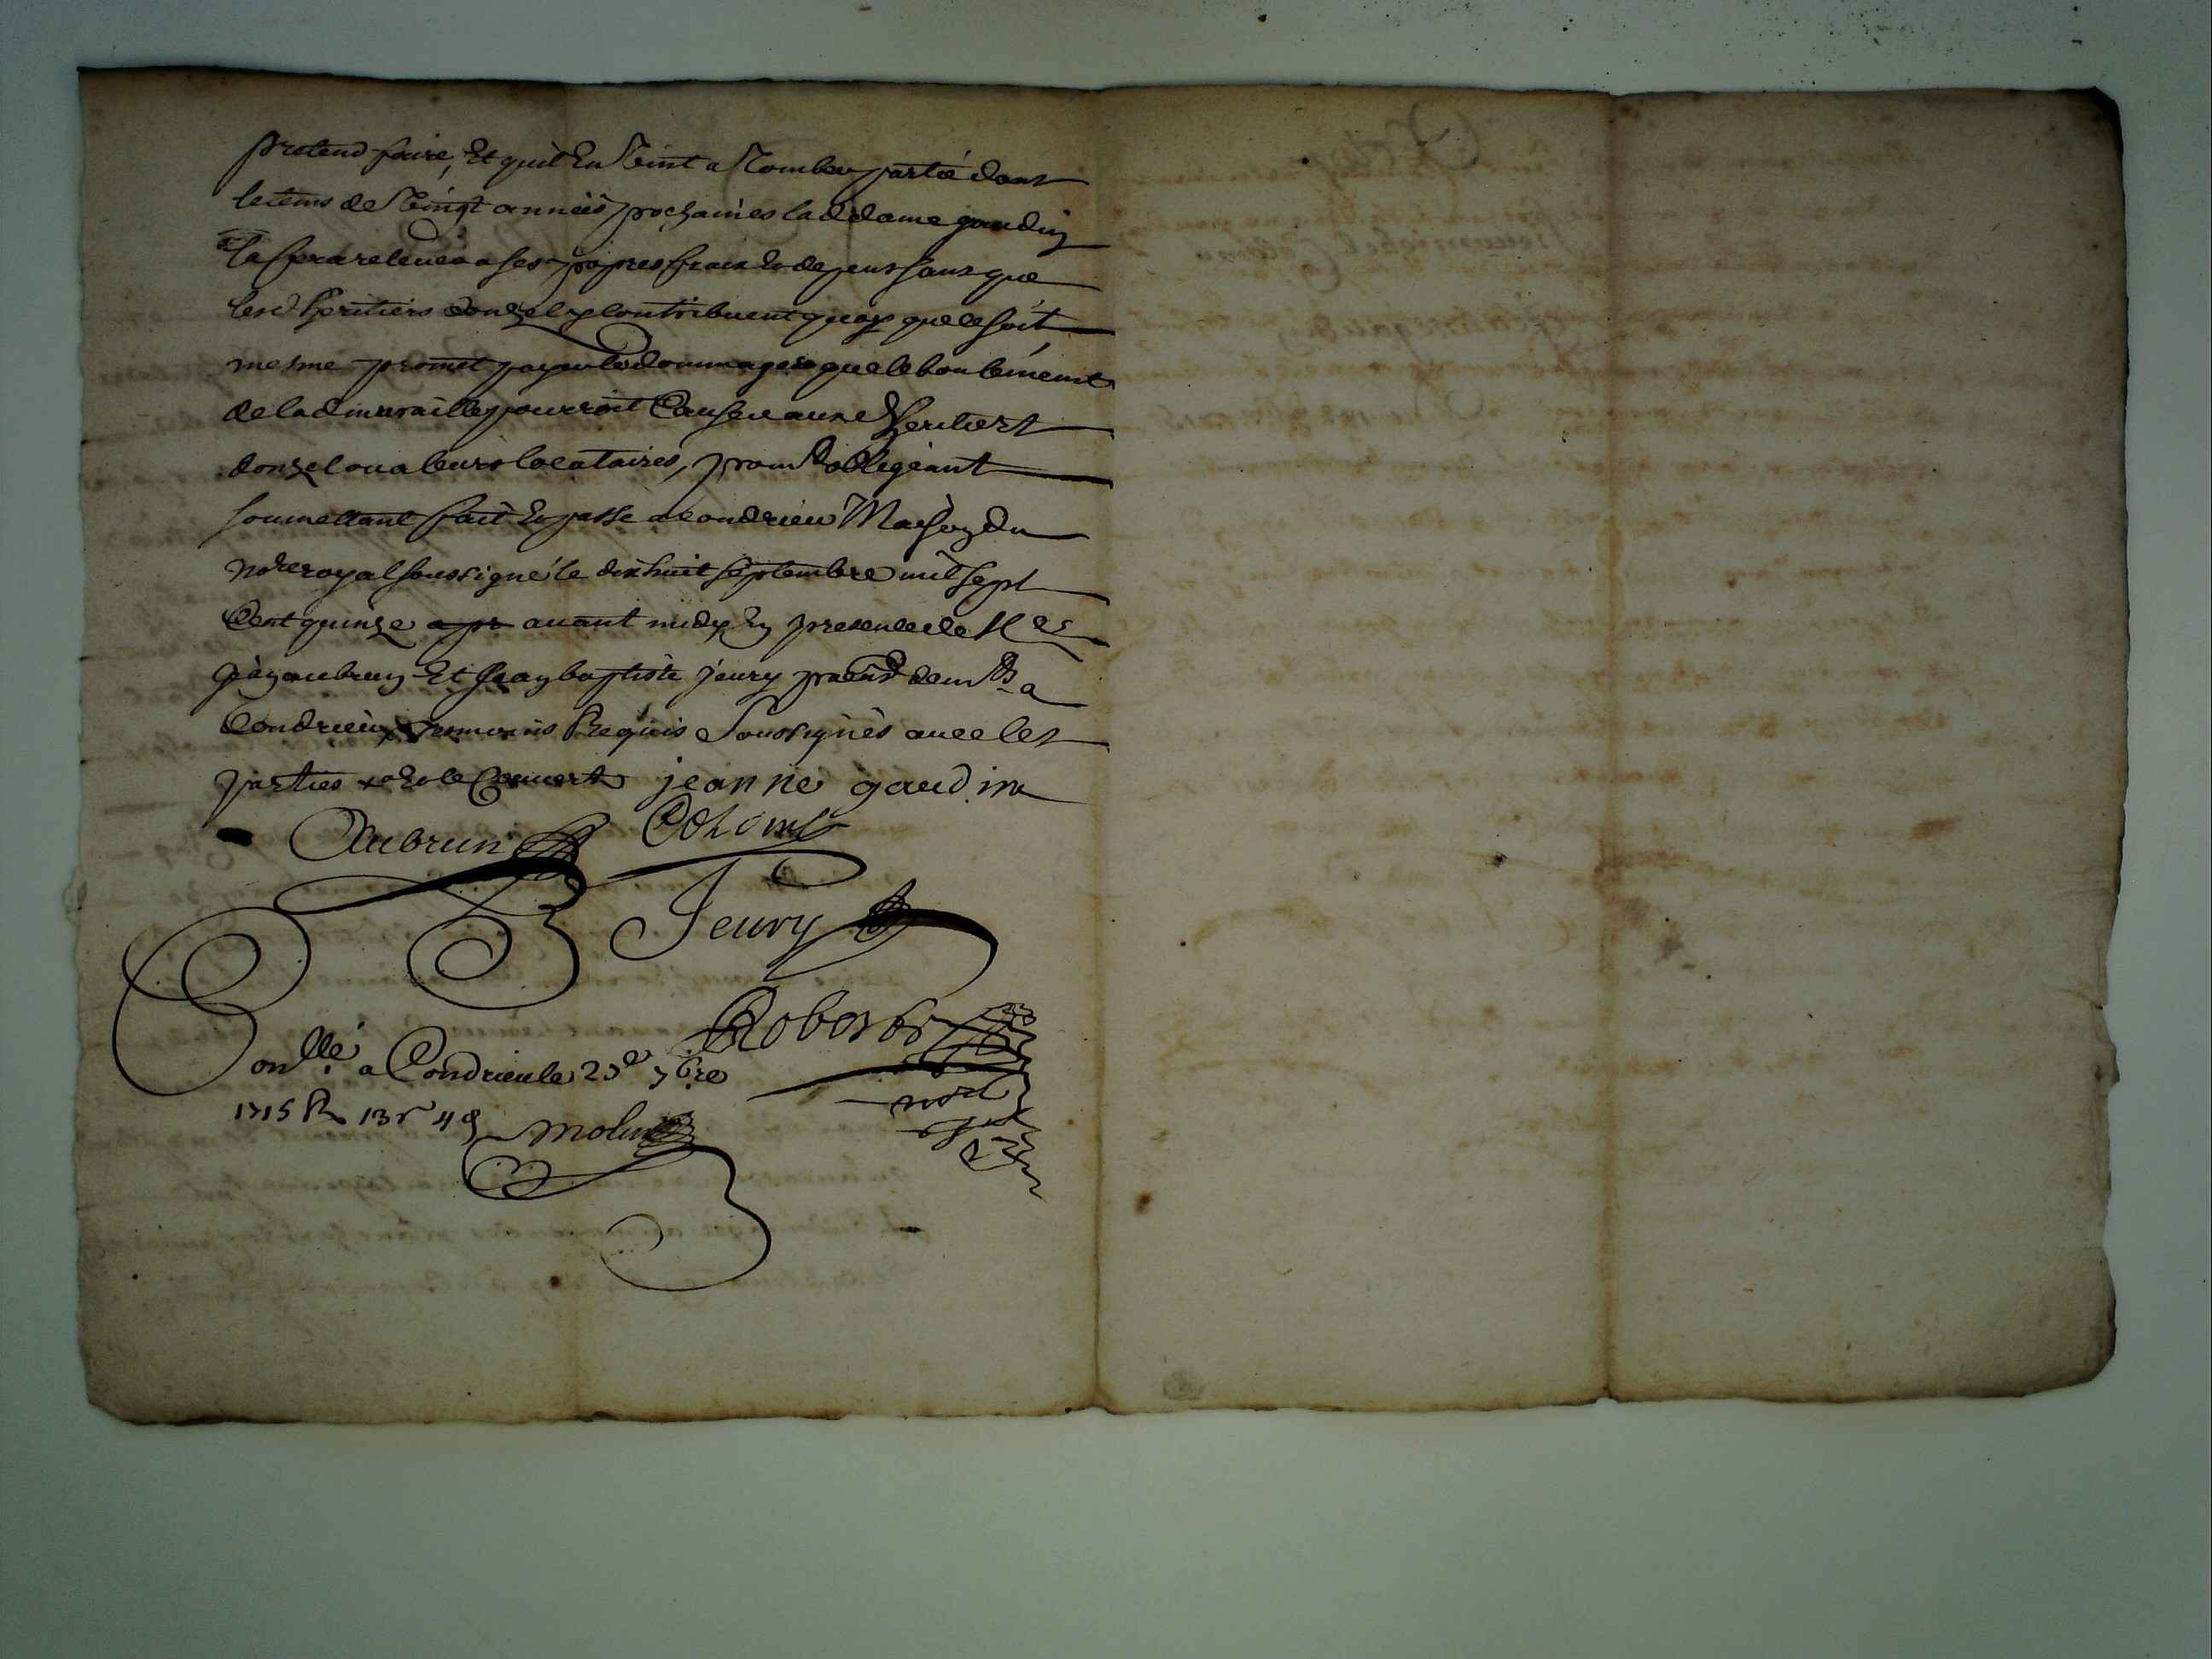 pretend faire, Et quil En Vint a Tomber partie dans
le tems de Vingt années prochaines lad dame gaudin
la fera relever a ses propres frais & depens sans que
lesd heritiers donzel y contribuent quoy que ce soit
mesme promet payer les dommages que leboulement
de lad muraille pourroit Causer ausd heritiers
donzel ou a leurs locataires, prom obligeant
soumettant fait & passé a condrieu Maison du
no.re royal soussigné le dix huit septembre mil sept
Cent quinze avant midy En presence de
aubrun Et Jean baptiste jeury dem.t a
Condrieu Temoins Requis Soussignés avec les
parties jeanne gaudin
Aubrun Colomb
Jeury
Robert
Con.llé a Condrieu le 23e 7bre
1715 R 13 s 4 d